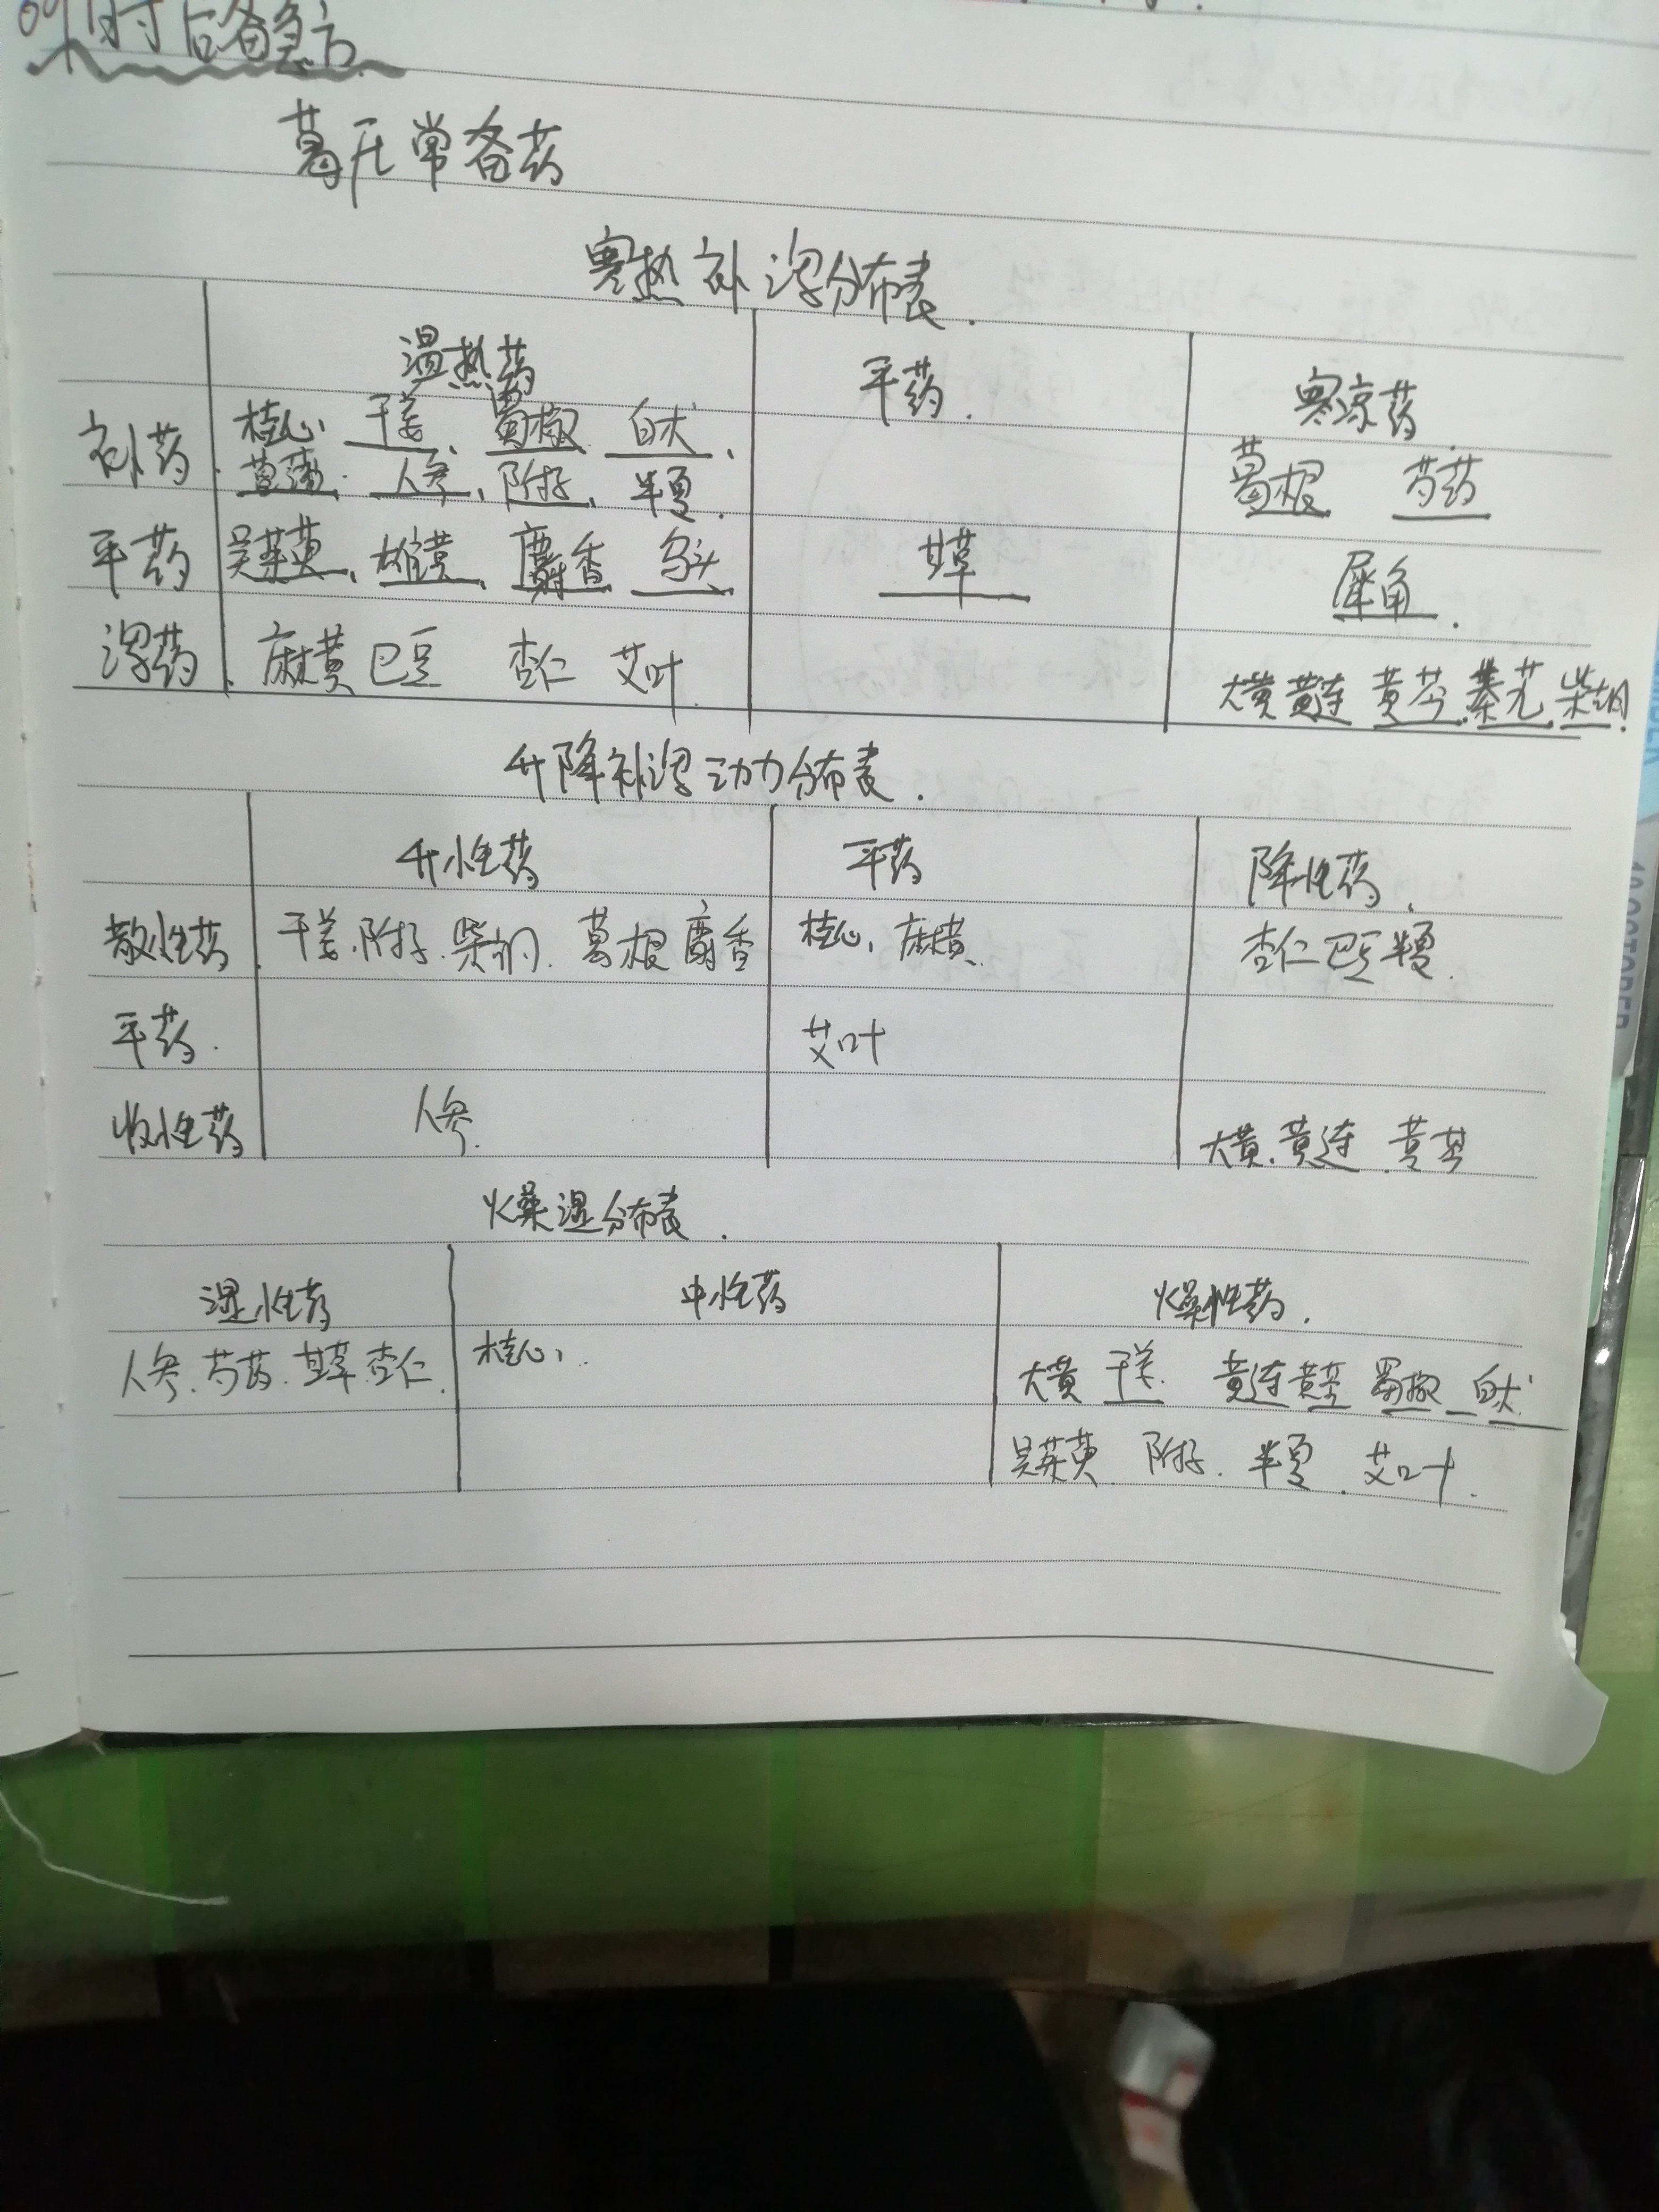 肘后备急方
葛氏常备药
寒热补泻分布表.
温热药 平药. 寒凉药.
补药. 桂心、干姜、蜀椒 白术、 葛根 芍药
人参、附子、半夏.
平药 吴茱萸、雄黄、麝香 乌头 甘草 犀角.
泻药. 麻黄 巴豆 杏仁 艾叶 大黄 黄连 黄芩.秦艽.柴胡.
升降补泻动力分布表.
升性药 平药 降性药.
散性药 干姜.附子.柴胡. 葛根 麝香 桂心、麻黄. 杏仁 巴豆 半夏.
平药. 艾叶
收性药 人参. 大黄.黄连.黄芩
燥湿分布表.
湿性药 中性药 燥性药.
人参.芍药.甘草.杏仁. 桂心、 大黄 干姜. 黄连 黄芩 蜀椒 白术
吴茱萸 附子. 半夏. 艾叶.
OCTOBER